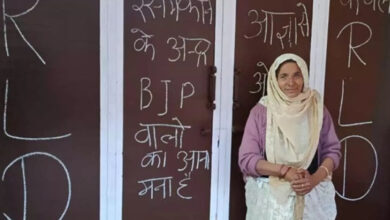 R
L
D
इस मकान
के अन्दर
BJP
वालो
का आना
मना है
आज्ञा से
R
L
D